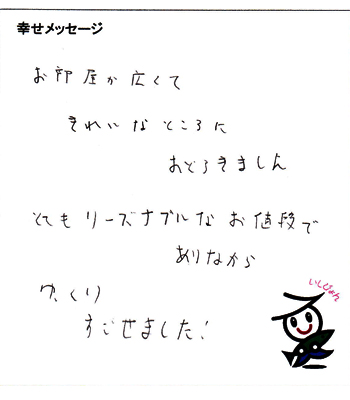 幸せメッセージ
お部屋が広くて
きれいなところに
おどろきました
とてもリーズナブルなお値段で
ありながら
ゆっくり
すごせました!
いしぴょん